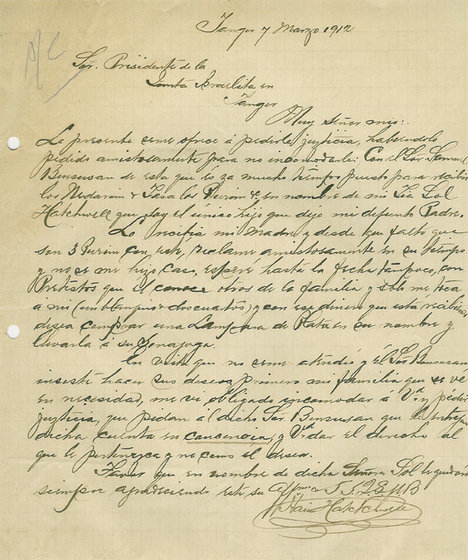 Tanger 7 Marzo 1912
Sor. Presidente de la
Junta Israelita en
Tanger
Muy Señor mio:
La presente ceme ofrece á pedirle justicia, habiendolo
pedido amistosamente para no incomodarle: Con el Sor Samuel
Bensusan de esta que lo ga mucho tiempo puesto para recibir
los Nedarim y en nombre de mi Tia Sol
Hatchuell que soy el unico hijo que dejo mi defunto Padre.
Lo recibia mi Madre y desde que falto que
son 3 Purim con este, reclame amistosamente en su tiempo
y no se me hizo caso, espere hasta la fecha tampoco, con
Pretestos que el conoce otros de la familia y solo me toca
á mi (un blanquio dos cuartos) y con ese dinero que está recibiendo
desea comprar una Lampara de Plata en su nombre y
llevarla á su Sinagoga.
En vista que no ceme atendio y el Sor Bensusan
insesté hacer sus deseos, primero mi familia que se ve
en necesidad, me ve obligado encomodar á Vd. y pedir
justicia, que pidan al dicho Sor Bensusan que le entregue
dicha cuenta en conciencia y Vd dar el derecho al
que le pertenezca y no como el desea.
Favor que en nombre de dicha Señora Sol le quedará
siempre apareciendo este su
Hatchuell